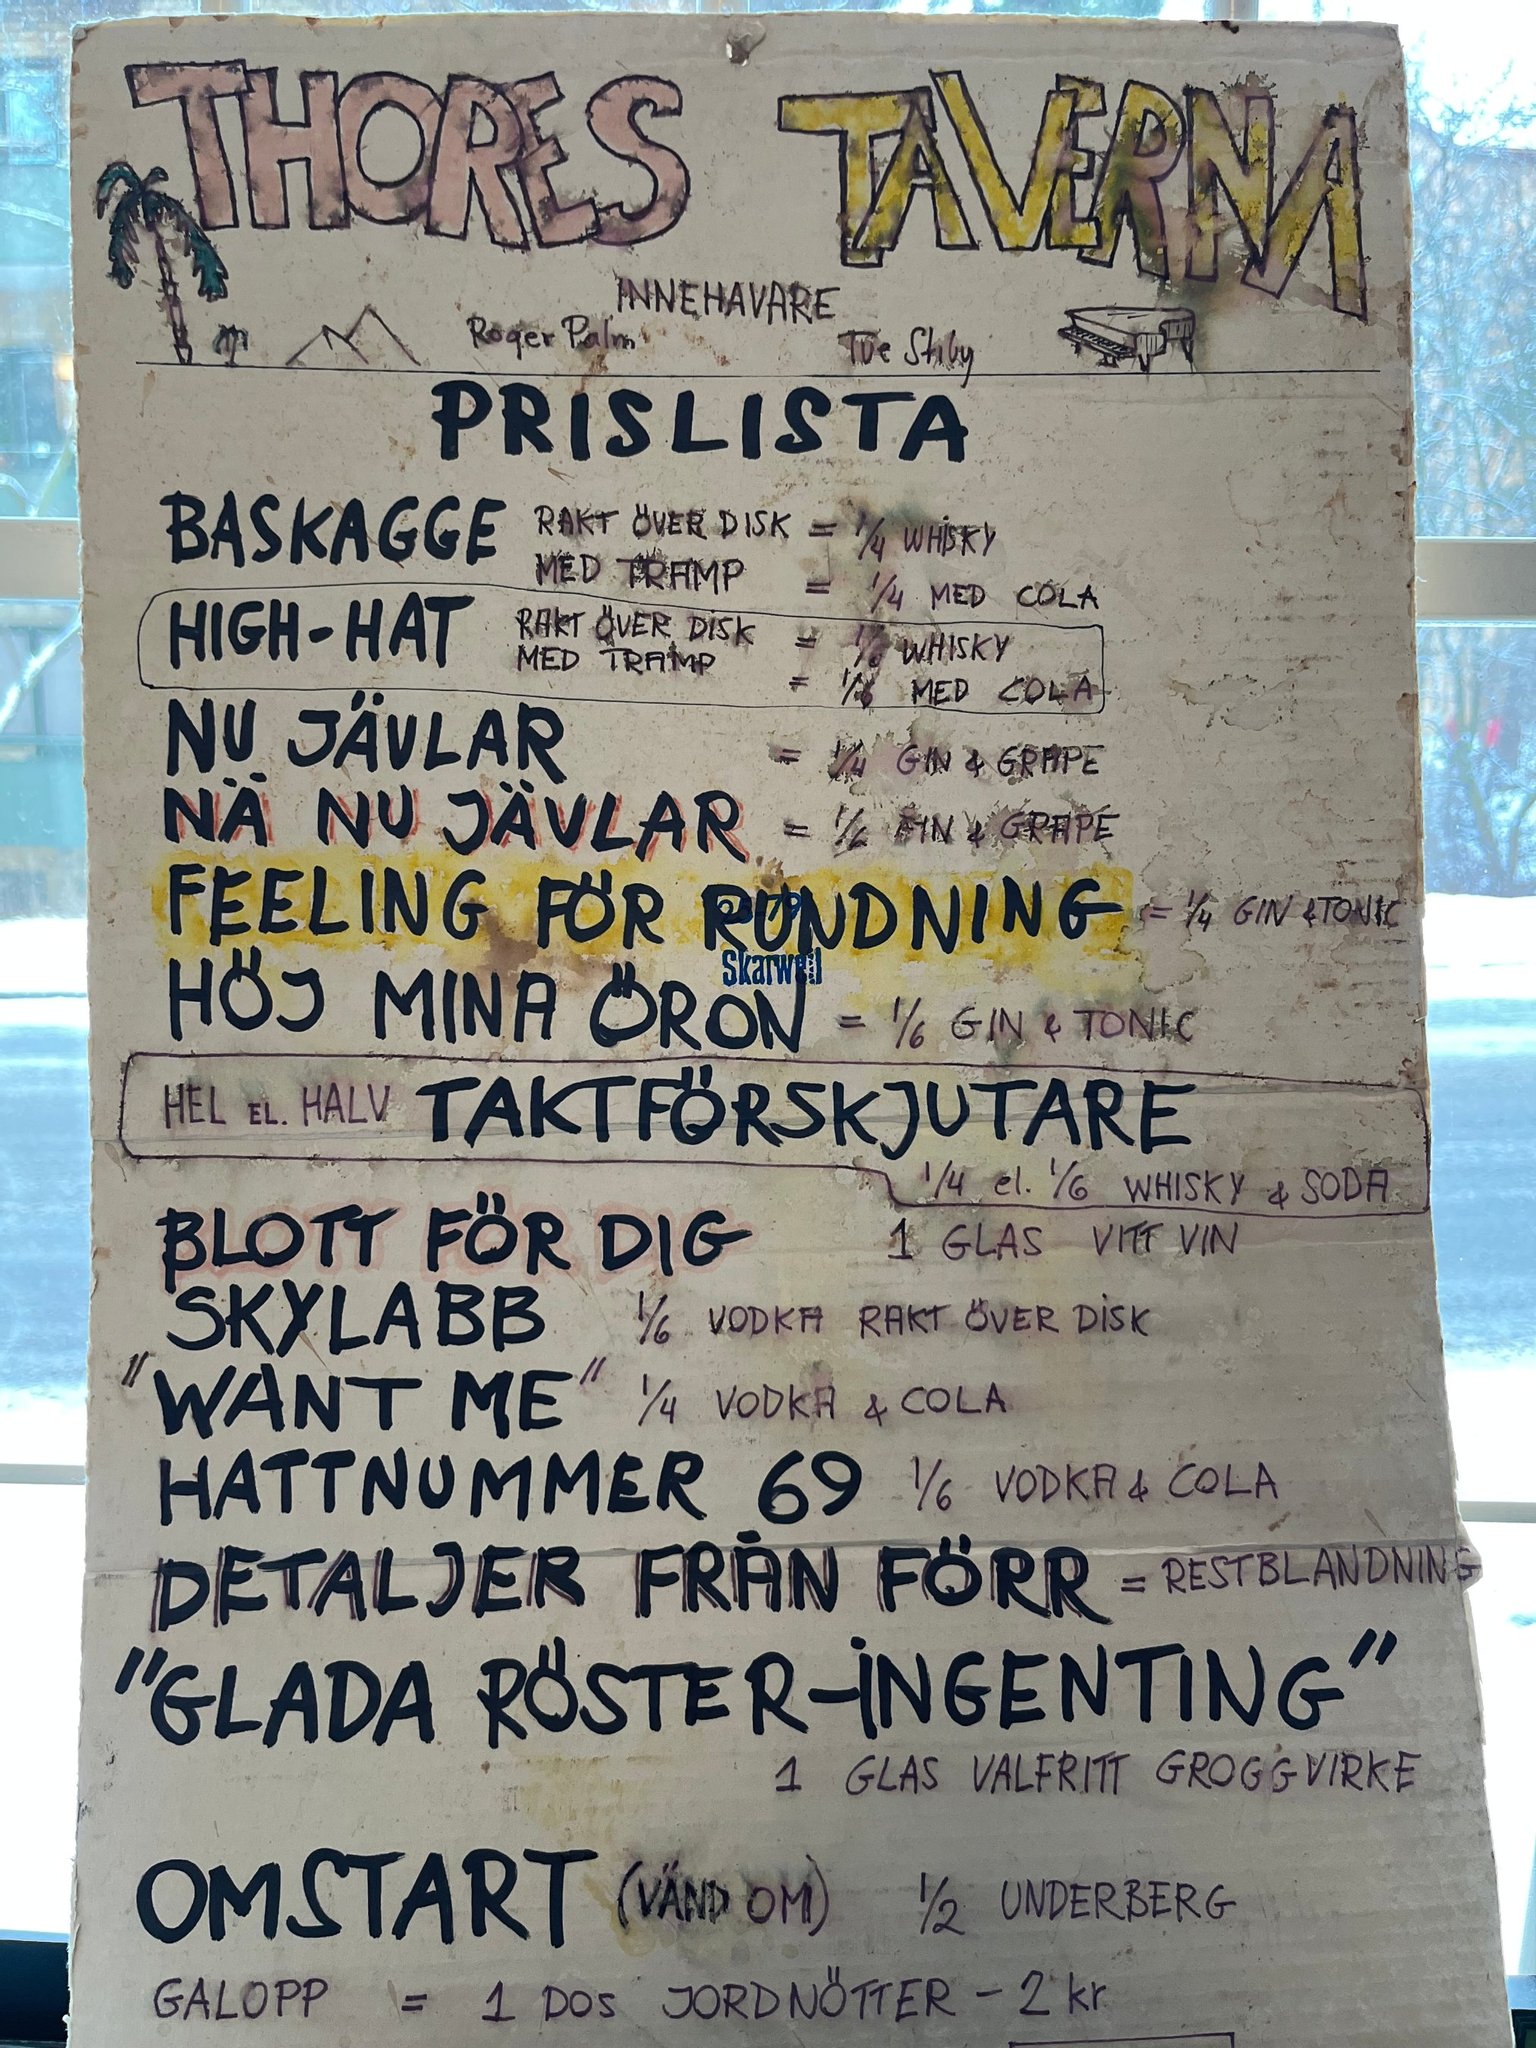 THORES TAVERNA
INNEHAVARE
Roger Palm Tue Stiby
PRISLISTA
BASKAGGE RAKT ÖVER DISK = 1/4 WHISKY
MED TRAMP = 1/4 MED COLA
HIGH-HAT RAKT ÖVER DISK = 1/6 WHISKY
MED TRAMP = 1/6 MED COLA
NU JÄVLAR = 1/4 GIN & GRAPE
NÄ NU JÄVLAR = 1/6 GIN & GRAPE
FEELING FÖR RUNDNING = 1/4 GIN & TONIC
Skarwell
HÖJ MINA ÖRON = 1/6 GIN & TONIC
HEL EL. HALV TAKTFÖRSKJUTARE
1/4 el. 1/6 WHISKY & SODA
BLOTT FÖR DIG 1 GLAS VITT VIN
SKYLABB 1/6 VODKA RAKT ÖVER DISK
"WANT ME" 1/4 VODKA & COLA
HATTNUMMER 69 1/6 VODKA & COLA
DETALJER FRÅN FÖRR = RESTBLANDNING
"GLADA RÖSTER-INGENTING"
1 GLAS VALFRITT GROGGVIRKE
OMSTART (VÄND OM) 1/2 UNDERBERG
GALOPP = 1 DOS JORDNÖTTER - 2 kr